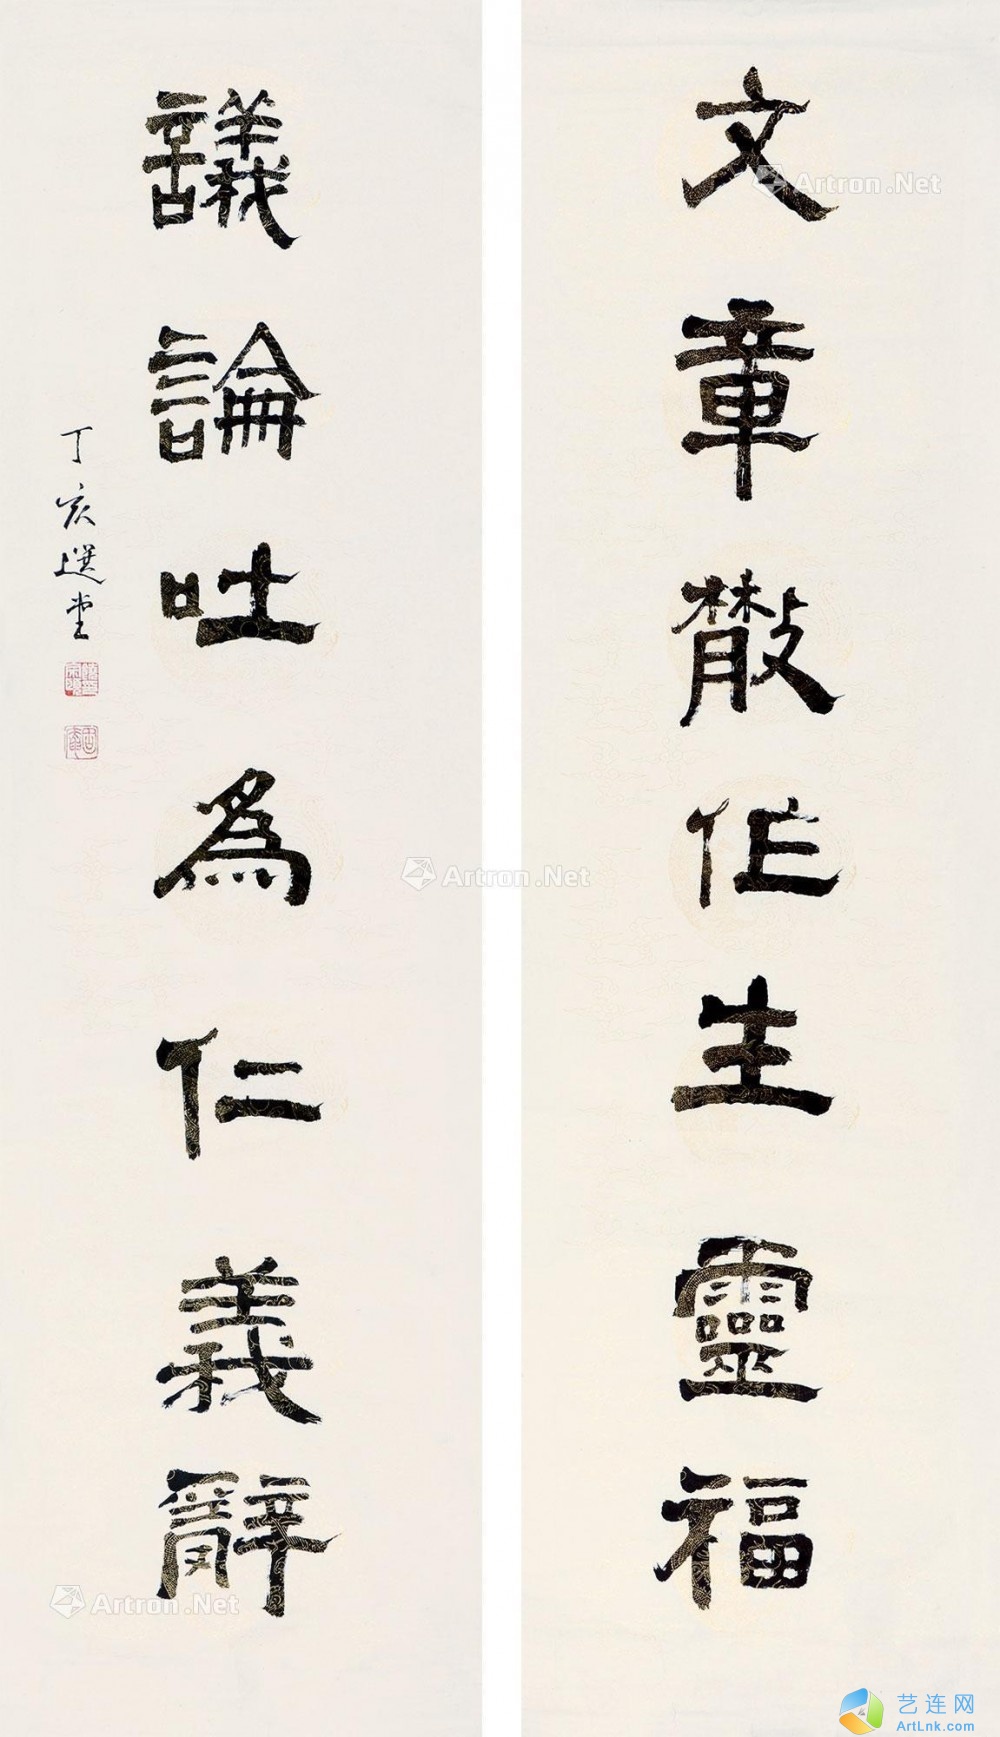 文章散作生靈福
議論吐為仁義辭
丁亥選堂
Artron.Net
Artron.Net
Artron.Net
艺连网
ArtLnk.com